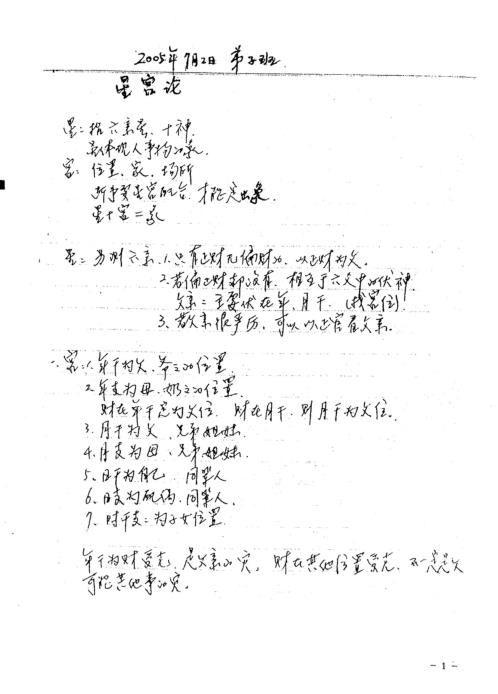 2005年7月2日 弟子班
星宫论
星:指六亲星、十神
宫:位置、家、场所
断事要星宫配合,才能定出象
星+宫=象
星:另测六亲、1.只有正财无偏财的,以正财为父。
2.若偏正财都没有,相当于六爻中的伏神
父亲:主要伏在年、月干。(找宫位)
3、若父亲很严厉,可以以正官看父亲。
宫:1.年干为父、爷爷的位置
2.年支为母、奶奶的位置
财在年干定为父位,财在月干,则月干为父位。
3.月干为父、兄弟姐妹
4.月支为母、兄弟姐妹.
5、日干为自己、同辈人
6、日支为配偶、同辈人
7、时干支:为子女位置
年干为财受克,是父亲的灾,财在其他位置受克,不一定是父
可能其他事的灾。
- 1 -